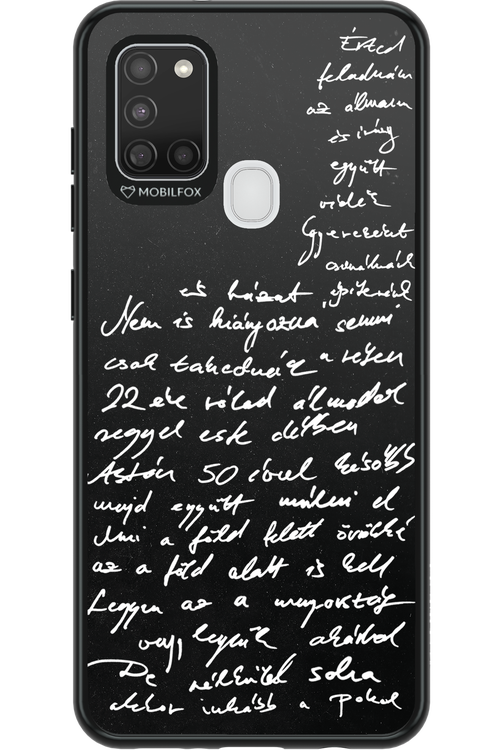 MOBILFOX
Érted
feladnám
az álmam
és irány
együtt
vidék
Gyereket
csinálnánk
és házat építenénk
Nem is hiányozna semmi
csak takednék a részem
22 éve rólad álmodok
reggel este délben
Aztán 50 évvel később
majd együtt múlni el
Ami a föld felett örökké
az a föld alatt is kell
Legyen az a mennyország
vagy legyünk akárhol
De nélküled soha
akkor inkább a pokol